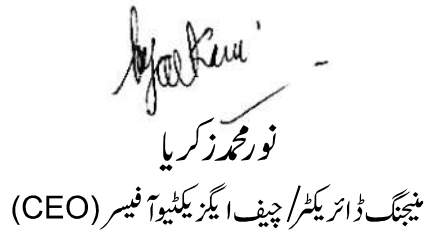 نور محمد زکریا
منیجنگ ڈائریکٹر/ چیف ایگزیکٹیو آفیسر (CEO)